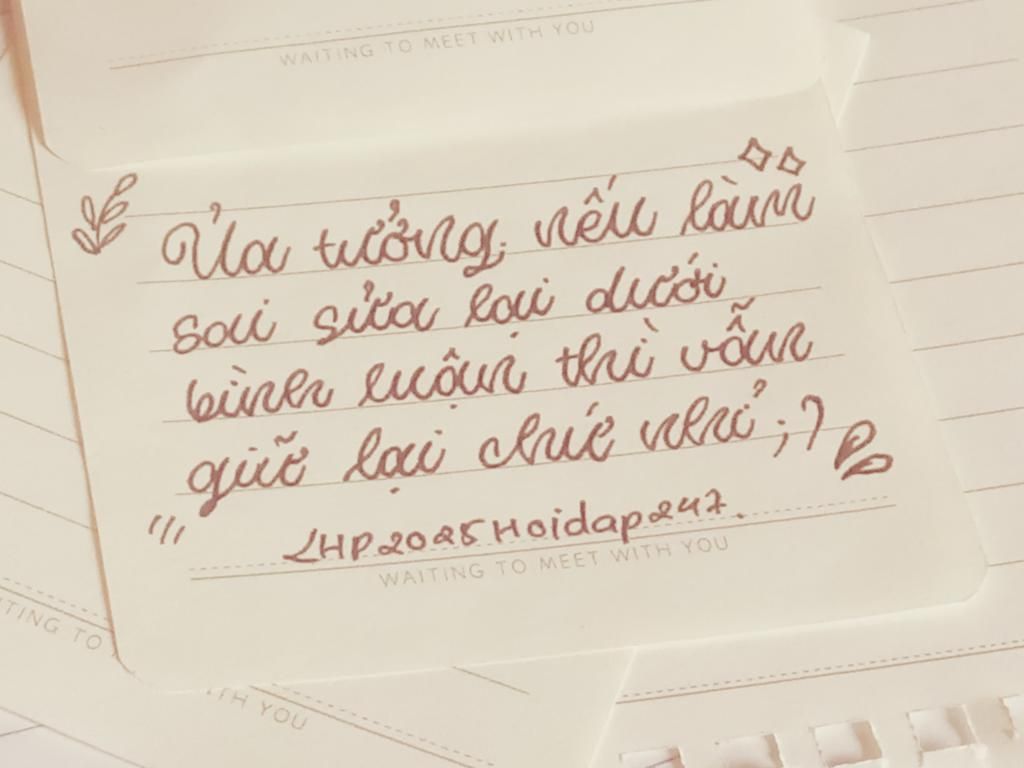 WAITING TO MEET WITH YOU
Ủa tưởng nếu làm
sai sửa lại dưới
bình luận thì vẫn
giữ lại chứ nhỉ ;?
LHP2025Hoidap247.
WAITING TO MEET WITH YOU
TING TO
TH YOU